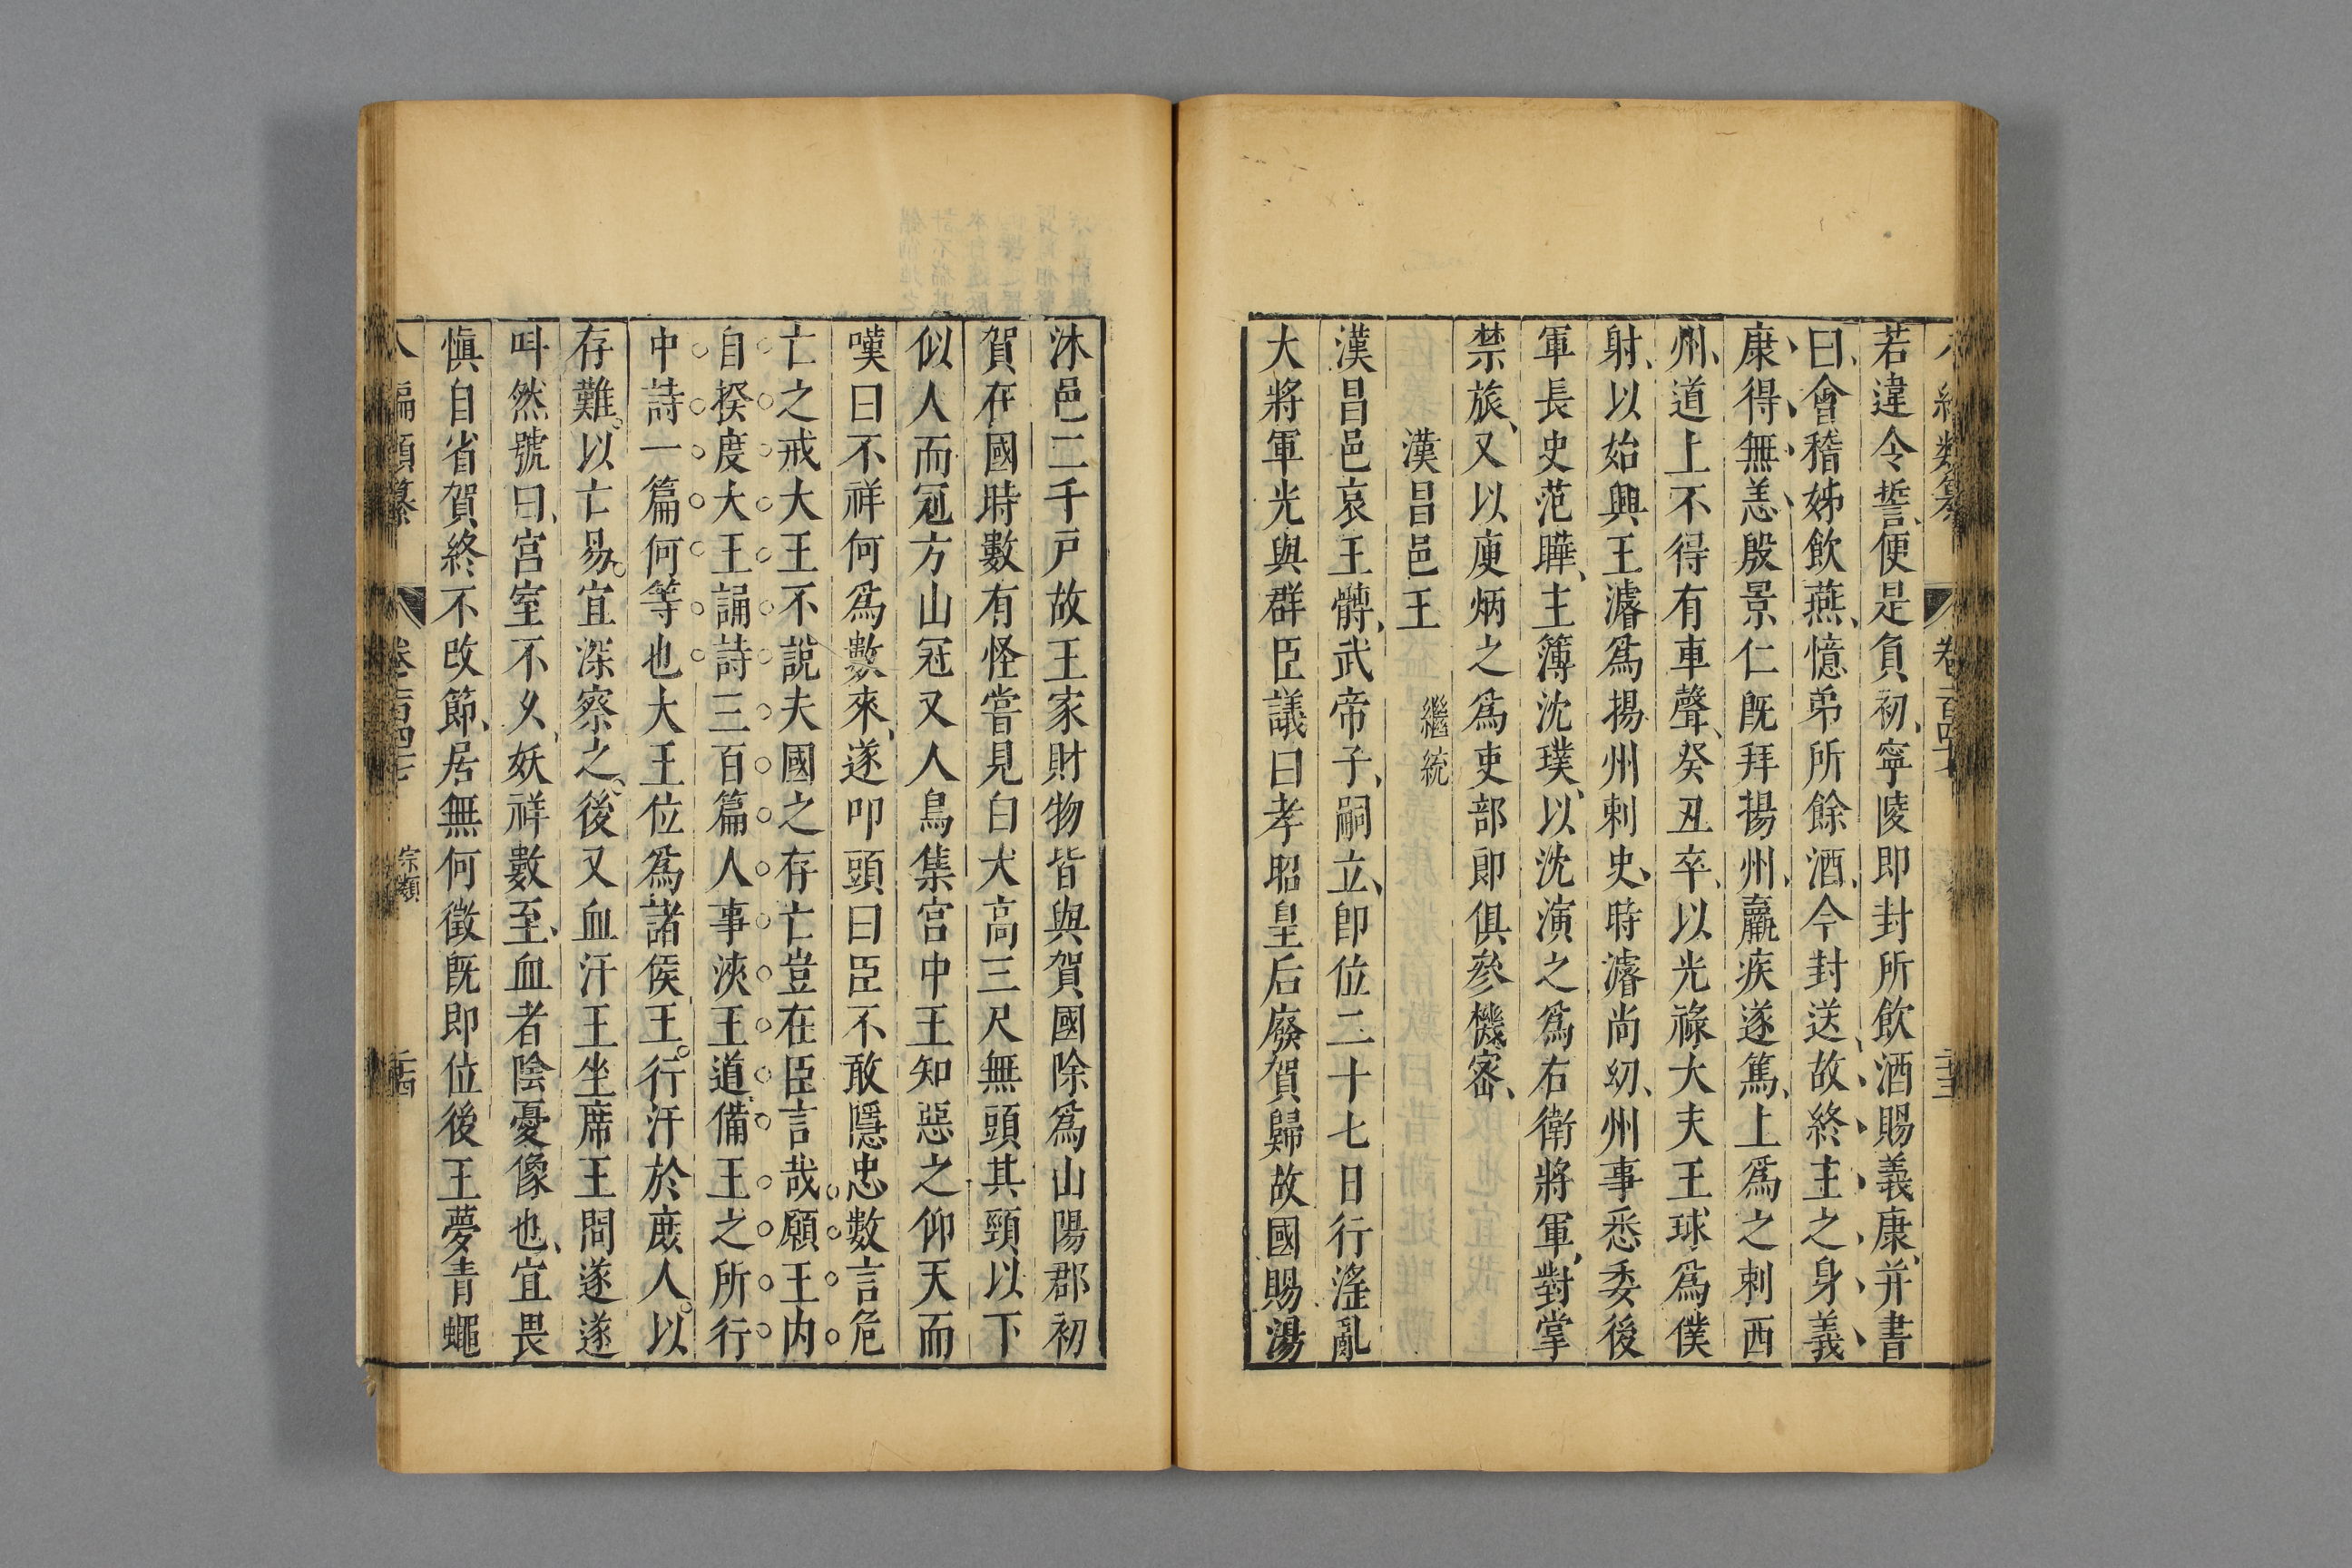 編類纂 卷一百四十七
若違令誓便是負初寧陵即封所飲酒賜義康并書
曰會稽姊飲燕憶弟所餘酒今封送故終主之身義
康得無恙殷景仁既拜揚州羸疾遂篤上爲之刺西
州道上不得有車聲癸丑卒以光祿大夫王球爲僕
射以始興王濬爲揚州刺史時濬尚幼州事悉委後
軍長史范曄主簿沈璞以沈演之爲右衛將軍對掌
禁旅又以庾炳之爲吏部郎俱參機密
漢昌邑王 繼統
漢昌邑哀王髆武帝子嗣立卽位二十七日行淫亂
大將軍光與群臣議曰孝昭皇后廢賀歸故國賜湯
沐邑二千戸故王家財物皆與賀國除爲山陽郡初
賀在國時數有怪嘗見白犬高三尺無頭其頸以下
似人而冠方山冠又人鳥集宮中王知惡之仰天而
嘆曰不祥何爲數來遂叩頭曰臣不敢隱忠數言危
亡之戒大王不說夫國之存亡豈在臣言哉願王内
自揆度大王誦詩三百篇人事浹王道備王之所行
中詩一篇何等也大王位爲諸侯王行汙於庻人以
存難以亡易宜深察之後又血汗王坐席王問遂遂
呌然號曰宮室不乆妖祥數至血者陰憂像也宜畏
愼自省賀終不改節居無何徵既即位後王夢青蠅
編類纂 卷一百四十七 宗類 二十四